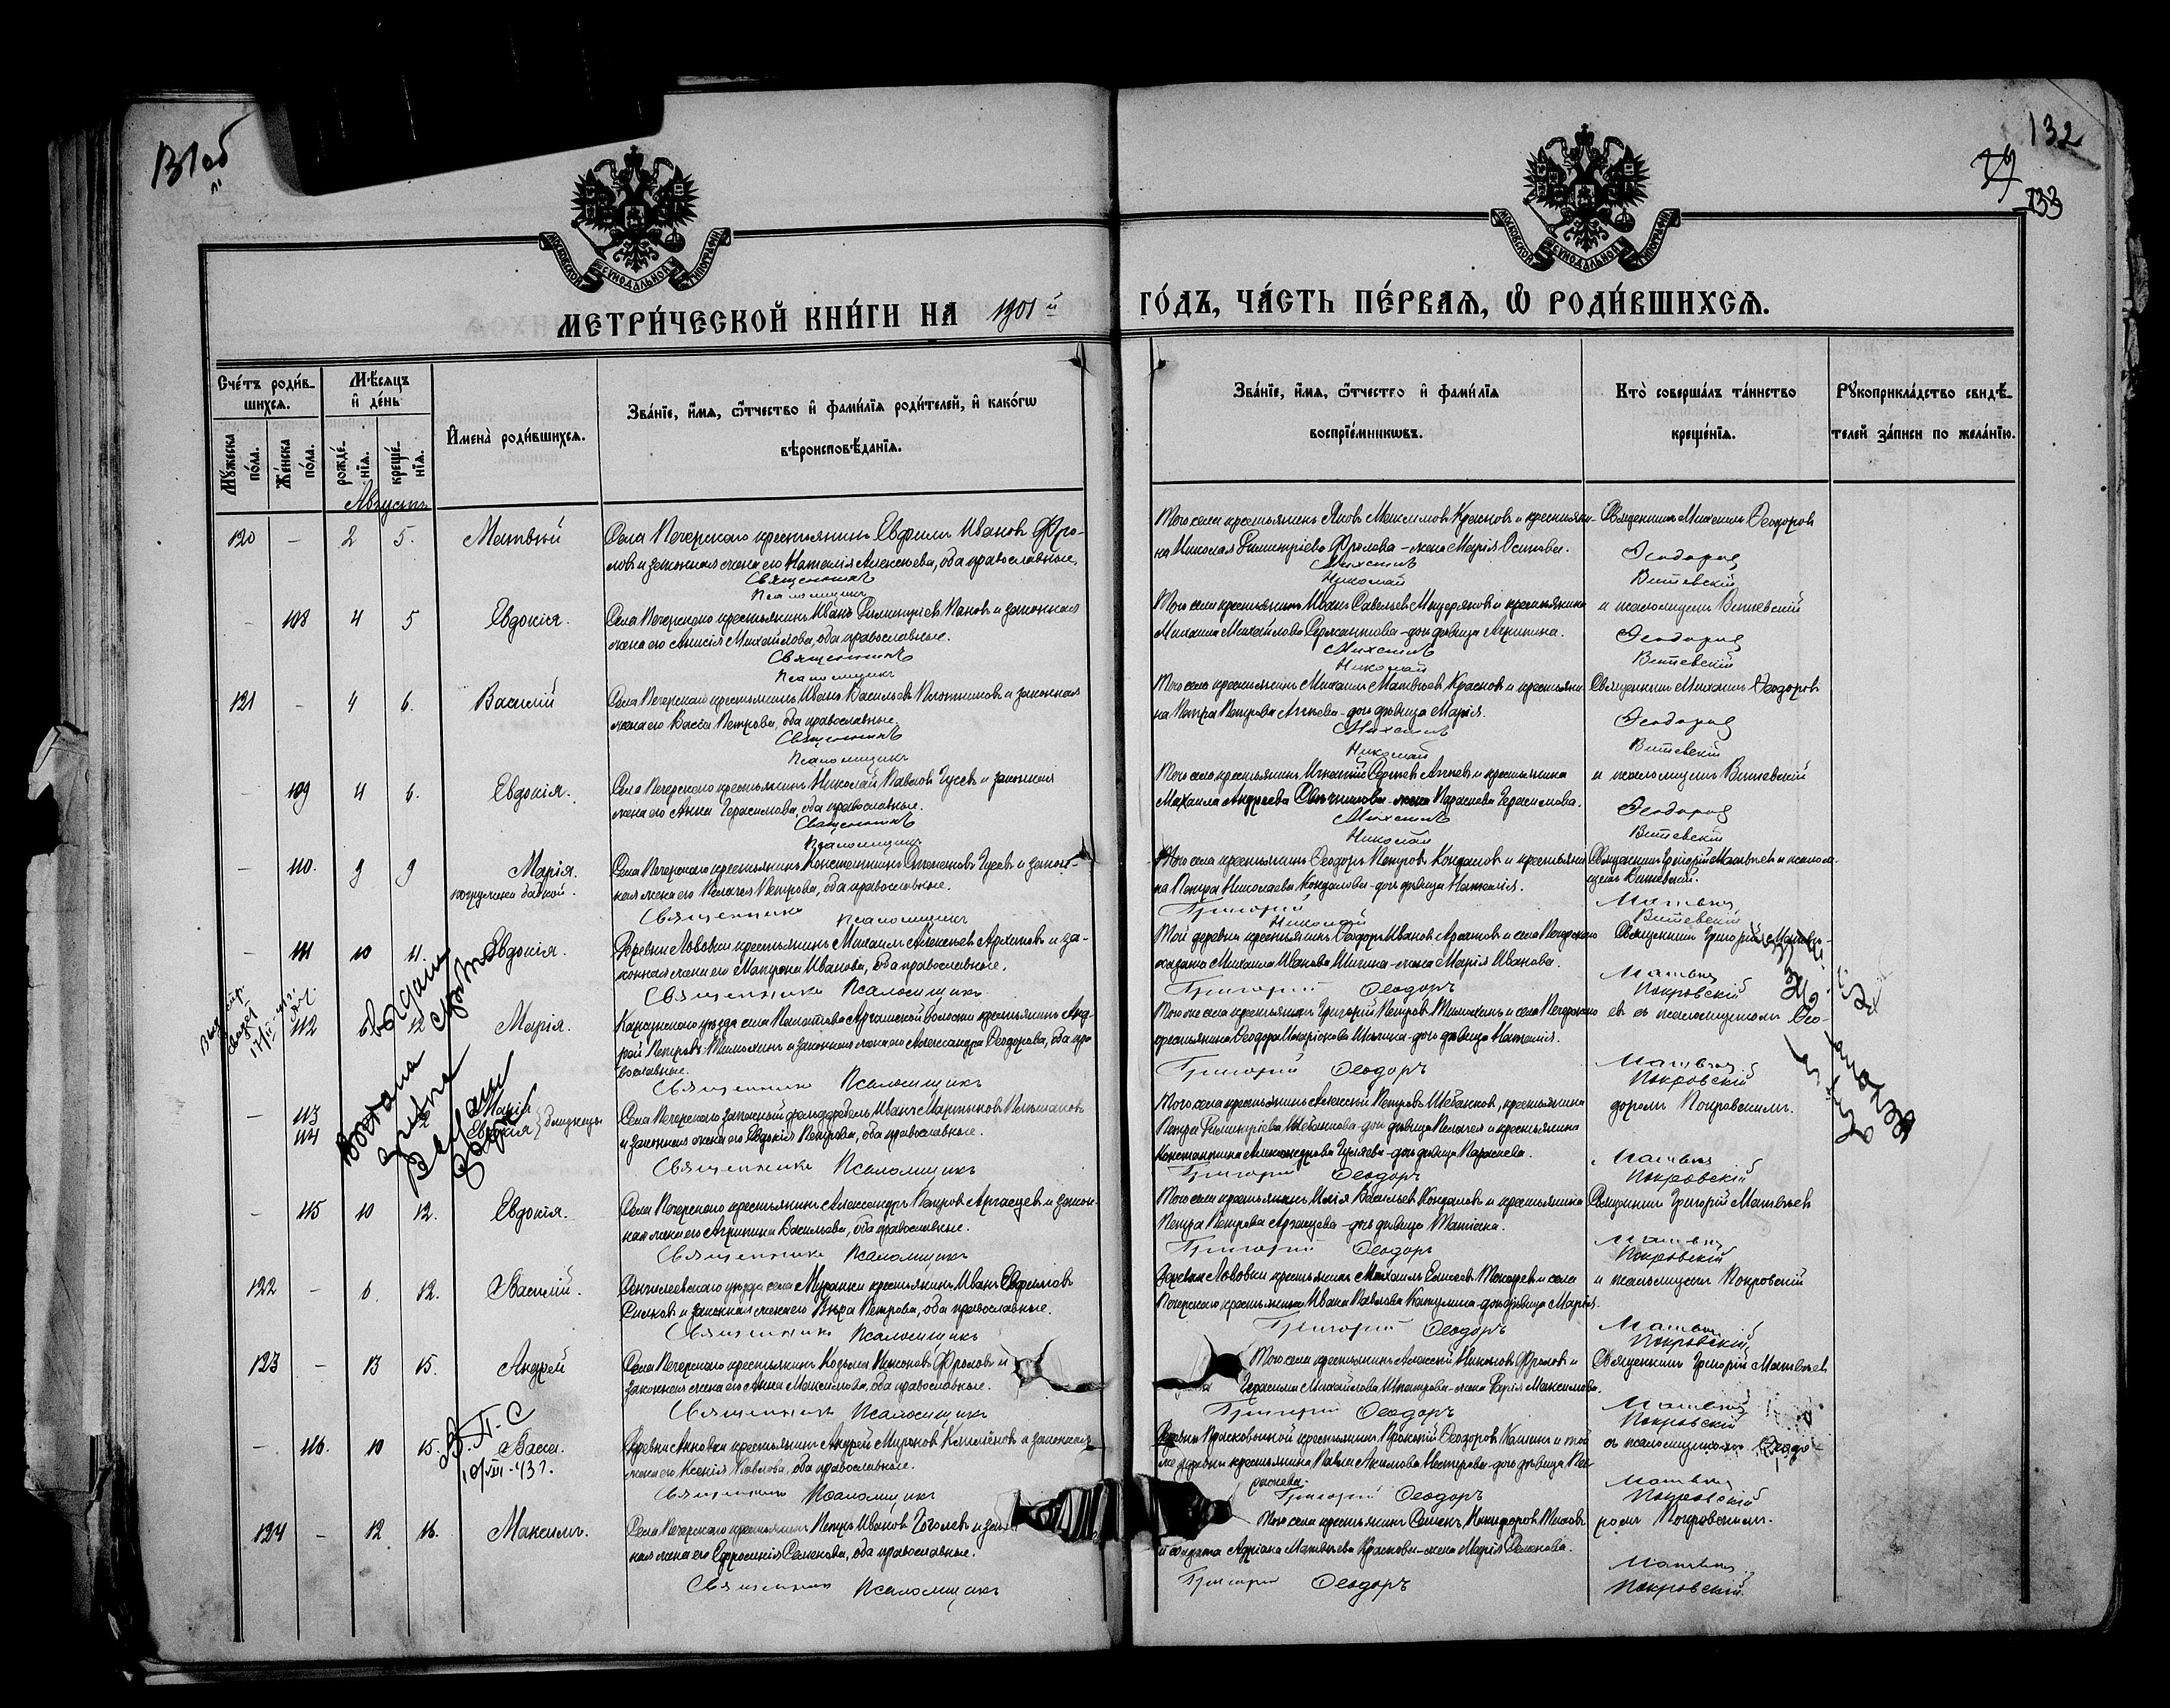 131об
132
133
МЕТРИ́ЧЕСКОЙ КНИ́ГИ НА 1901й ГО́ДЪ, ЧА́СТЬ ПЕ́РВАЯ, Ѽ РОДИ́ВШИХСЯ.
МОСКОВСКОЙ СѴНОДАЛЬНОЙ ТИПОГРАФІИ
МОСКОВСКОЙ СѴНОДАЛЬНОЙ ТИПОГРАФІИ
Сче́тъ роди́вшихся.
Мꙋ́жеска по́ла.
Же́нска по́ла.
Мѣ́сяцъ и҆ де́нь
рожде́нїя.
креще́нїя.
И҆мена̀ роди́вшихся.
Зва́нїе, и҆́мя, ѻ҆́тчество и҆ фами́лїя роди́телей, и҆ како́гѡ вѣроисповѣ́данїя.
Зва́нїе, и҆́мя, ѻ҆́тчество и҆ фами́лїя воспрїе́мникѡвъ.
Кто̀ соверша́лъ та́инство креще́нїя.
Рꙋкоприкла́дство свидѣ́телей за́писи по жела́нїю.
Августъ
120 – 2 5. Матвѣй
Села Печерскаго крестьянинъ Евфимъ Ивановъ Фро-
ловъ и законная жена его Наталія Алексѣева, оба православные.
Священникъ
Псаломщикъ
Того села крестьянинъ Яковъ Максимовъ Красновъ и крестьяни-
на Николая Димитріева Фролова – жена Марія Осипова.
Михаилъ
Николай
Священникъ Михаилъ Ѳеодоровъ
Ѳеодоровъ
Витевскій
– 108 4 5 Евдокія.
Села Печерскаго крестьянинъ Иванъ Димитріевъ Пановъ и законная
жена его Анисія Михайлова, оба православные.
Священникъ
Псаломщикъ
Того села крестьянинъ Иванъ Савельевъ Мещеряковъ и крестьянина
Михаила Михайлова Сержантова – дочь дѣвица Агрипина.
Михаилъ
Николай
и псаломщикъ Витевскій
Ѳеодоровъ
Витевскій
121 – 4 6. Василій
Села Печерскаго крестьянинъ Иванъ Васильевъ Плотниковъ и законная
жена его Васса Петрова, оба православные.
Священникъ
Псаломщикъ
Того села крестьянинъ Михаилъ Матвѣевъ Красновъ и крестьяни-
на Петра Петрова Агѣева – дочь дѣвица Марія.
Михаилъ
Николай
Священникъ Михаилъ Ѳеодоровъ
Ѳеодоровъ
Витевскій
– 109 4 6. Евдокія.
Села Печерскаго крестьянинъ Николай Павловъ Гусевъ и законная
жена его Анна Герасимова, оба православные.
Священникъ
Псаломщикъ
Того села крестьянинъ Игнатій Сергѣевъ Агѣевъ и крестьянина
Михаила Андреева Овчинникова – жена Параскева Герасимова.
Михаилъ
Николай
и псаломщикъ Витевскій
Ѳеодоровъ
Витевскій
– 110. 9 9 Марія.
погружена бабкой.
Села Печерскаго крестьянинъ Константинъ Степановъ Гусевъ и закон-
ная жена его Пелагея Петрова, оба православные.
Священникъ Псаломщикъ
Того села крестьянинъ Ѳеодоръ Петровъ Кондаловъ и крестьяни-
на Петра Николаева Кондалова – дочь дѣвица Наталія.
Григорій
Николай
Священникъ Григорій Матвѣевъ и псалом-
щикъ Витевскій.
Матвѣевъ
Витевскій
– 111 10 11. Евдокія.
Деревни Львовки крестьянинъ Михаилъ Алексѣевъ Архиповъ и за-
конная жена его Матрона Иванова, оба православные.
Священникъ Псаломщикъ
Той деревни крестьянинъ Ѳеодоръ Ивановъ Арсановъ и села Печерскаго
солдата Михаила Иванова Шигина – жена Марія Иванова.
Григорій Ѳеодоръ
Священникъ Григорій Матвѣ-
Матвѣевъ
Покровскій
112 12 Марія.
Карсунскаго уѣзда села Палатова Аргашской волости крестьянинъ Анд-
рей Петровъ Тимохинъ и законная жена его Александра Ѳеодорова, оба пра-
вославные.
Священникъ Псаломщикъ
Того же села крестьянинъ Григорій Петровъ Тимохинъ и села Печерскаго
крестьянина Ѳеодора Илларіонова Шигина – дочь дѣвица Наталія.
Григорій Ѳеодоръ
евъ съ псаломщикомъ Ѳео-
Матвѣевъ
Покровскій
– 113 114 Марія Евдокія } Близнецы
Села Печерскаго запасный фельдфебель Иванъ Мартыновъ
и законная жена его Евдокія Петрова, оба православные.
Священникъ Псаломщикъ
Того села крестьянинъ Алексѣй Петровъ Шебанковъ, крестьянина
Петра Димитріева Шебанкова – дочь дѣвица Пелагея и крестьянина
Константина Александрова Гуляева – дочь дѣвица Параскева.
Григорій Ѳеодоръ
доромъ Покровскимъ.
Матвѣевъ
Покровскій
– 115 10 12. Евдокія.
Села Печерскаго крестьянинъ Александръ Петровъ Аргасцевъ и закон-
ная жена его Агрипина Васильева, оба православные.
Священникъ Псаломщикъ
Того села крестьянинъ Илія Васильевъ Кондаловъ и крестьянина
Петра Петрова Аргасцева – дочь дѣвица Татіана.
Григорій Ѳеодоръ
Священникъ Григорій Матвѣевъ
Матвѣевъ
Покровскій
122 – 6. 12. Василій.
Сенгилеевскаго уѣзда села Муранки крестьянинъ Иванъ Евфимовъ
Силковъ и законная жена его Вѣра Петрова, оба православные.
Священникъ Псаломщикъ
Деревни Львовки крестьянинъ Михаилъ Елисеевъ Токаревъ и села
Печерскаго крестьянина Ивана Павлова Катулина – дочь дѣвица Марія.
Григорій Ѳеодоръ
и псаломщикъ Покровскій
Матвѣевъ
Покровскій
123 – 13 15. Андрей
Села Печерскаго крестьянинъ Козьма Никоновъ Фроловъ и
законная жена его Анна Максимова, оба православные.
Священникъ Псаломщикъ
Того села крестьянинъ Алексѣй Никоновъ Фроловъ и
Герасима Михайлова Шпатрова – жена Дарія Максимова.
Григорій Ѳеодоръ
Священникъ Григорій Матвѣевъ
Матвѣевъ
Покровскій
– 116. 10 15. Васса.
В.П-С
19/VIII-43г.
Деревни Анновки крестьянинъ Андрей Мироновъ Климёновъ и законная
жена его Ксенія Павлова, оба православные.
Священникъ Псаломщикъ
Деревни Прасковьиной крестьянинъ Прокопій Ѳеодоровъ Калинъ и той
же деревни крестьянина Павла Акимова Нестерова – дочь дѣвица Па-
раскева.
Григорій Ѳеодоръ
съ псаломщикомъ Ѳеодо-
Матвѣевъ
Покровскій
124 – 12 16. Максимъ.
Села Печерскаго крестьянинъ Петръ Ивановъ Гоголевъ и закон-
ная жена его Ефросинія Семенова, оба православные.
Священникъ Псаломщикъ
Того села крестьянинъ Семенъ Никифоровъ
и солдата Адріана Матвѣева Краснова – жена Марія Семенова.
Григорій Ѳеодоръ
ромъ Покровскимъ.
Матвѣевъ
Покровскій